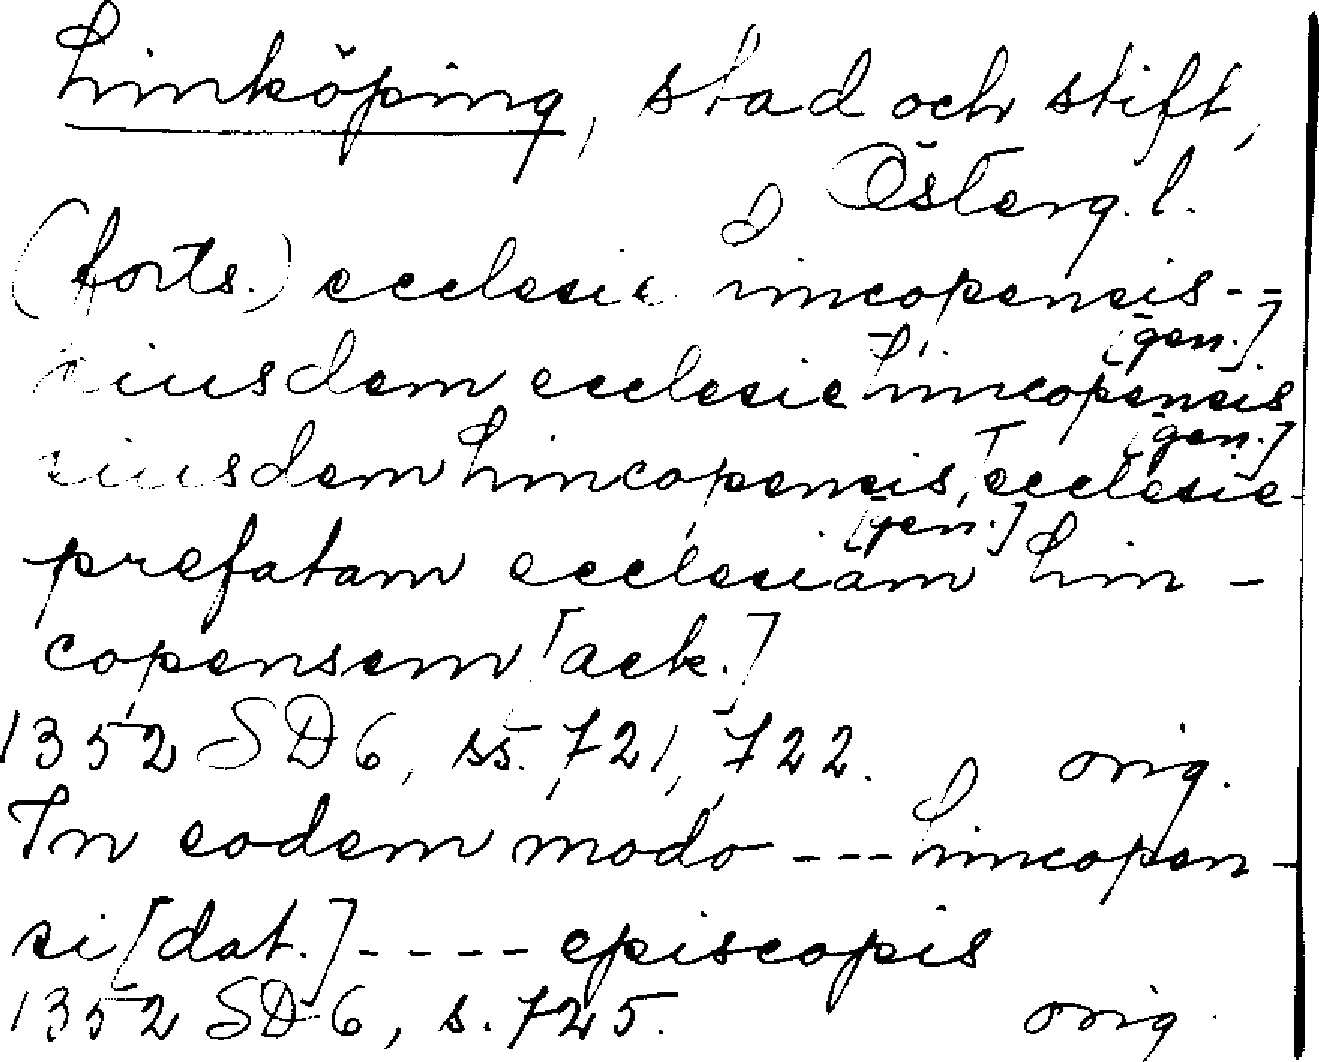 Linköping, stad och stift,
Österg. l.
(forts.) ecclesie lincopensis --
[gen.]
eiusdem ecclesie Lincopensis
[gen.]
eiusdem Lincopensis, ecclesie
[gen.]
prefatam ecclesiam Lin-
copensem [ack.]
1352 SD 6, ss. 721, 722. orig.
In eodem modo --- Lincopen-
si [dat.] ----- episcopis
1352 SD 6, s. 725. orig.